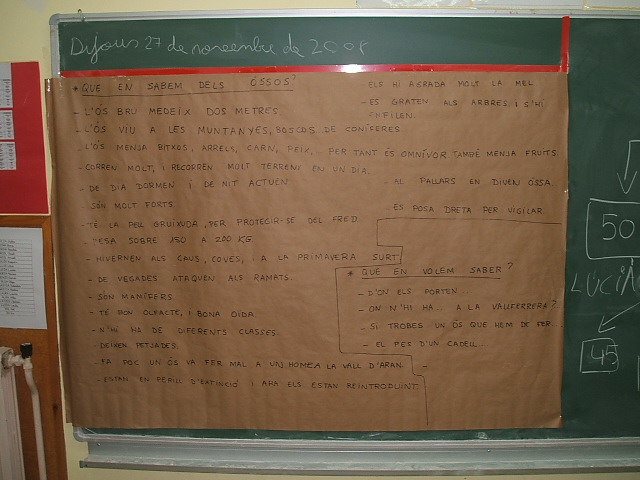 Dijous 27 de novembre de 2008
* QUÈ EN SABEM DELS ÓSSOS?
- L'ÓS BRU MEDEIX DOS METRES.
- L'ÓS VIU A LES MUNTANYES, BOSCOS DE CONÍFERES
- L'ÓS MENJA BITXOS, ARRELS, CARN, PEIX,... PER TANT ÉS OMNÍVOR TAMBÉ MENJA FRUITS
- CORREN MOLT, I RECORREN MOLT TERRENY EN UN DIA.
- DE DIA DORMEN I DE NIT ACTUEN
- SÓN MOLT FORTS.
- TÉ LA PELL GRUIXUDA, PER PROTEGIR-SE DEL FRED.
- PESA SOBRE 150 A 200 KG.
- HIVERNEN ALS CAUS, COVES, I A LA PRIMAVERA SURT
- DE VEGADES ATAQUEN ALS RAMATS.
- SÓN MAMÍFERS
- TÉ BON OLFACTE, I BONA OÏDA
- N'HI HA DE DIFERENTS CLASSES.
- DEIXEN PETJADES.
- FA POC UN ÓS VA FER MAL A UN HOME A LA VALL D'ARAN.
- ESTAN EN PERILL D'EXTINCIÓ I ARA ELS ESTAN REINTRODUINT
- ELS HI AGRADA MOLT LA MEL.
- ES GRATEN ALS ARBRES, I S'HI
ENFILEN.
- AL PALLARS EN DIUEN ÓSSA.
- ES POSA DRETA PER VIGILAR
* QUÈ EN VOLEM SABER?
- D'ON ELS PORTEN...
- ON N'HI HA... A LA VALLFERRERA?
- SI TROBES UN ÓS QUE HEM DE FER..
- EL PES D'UN CADELL...
-
50
LUCIA
45